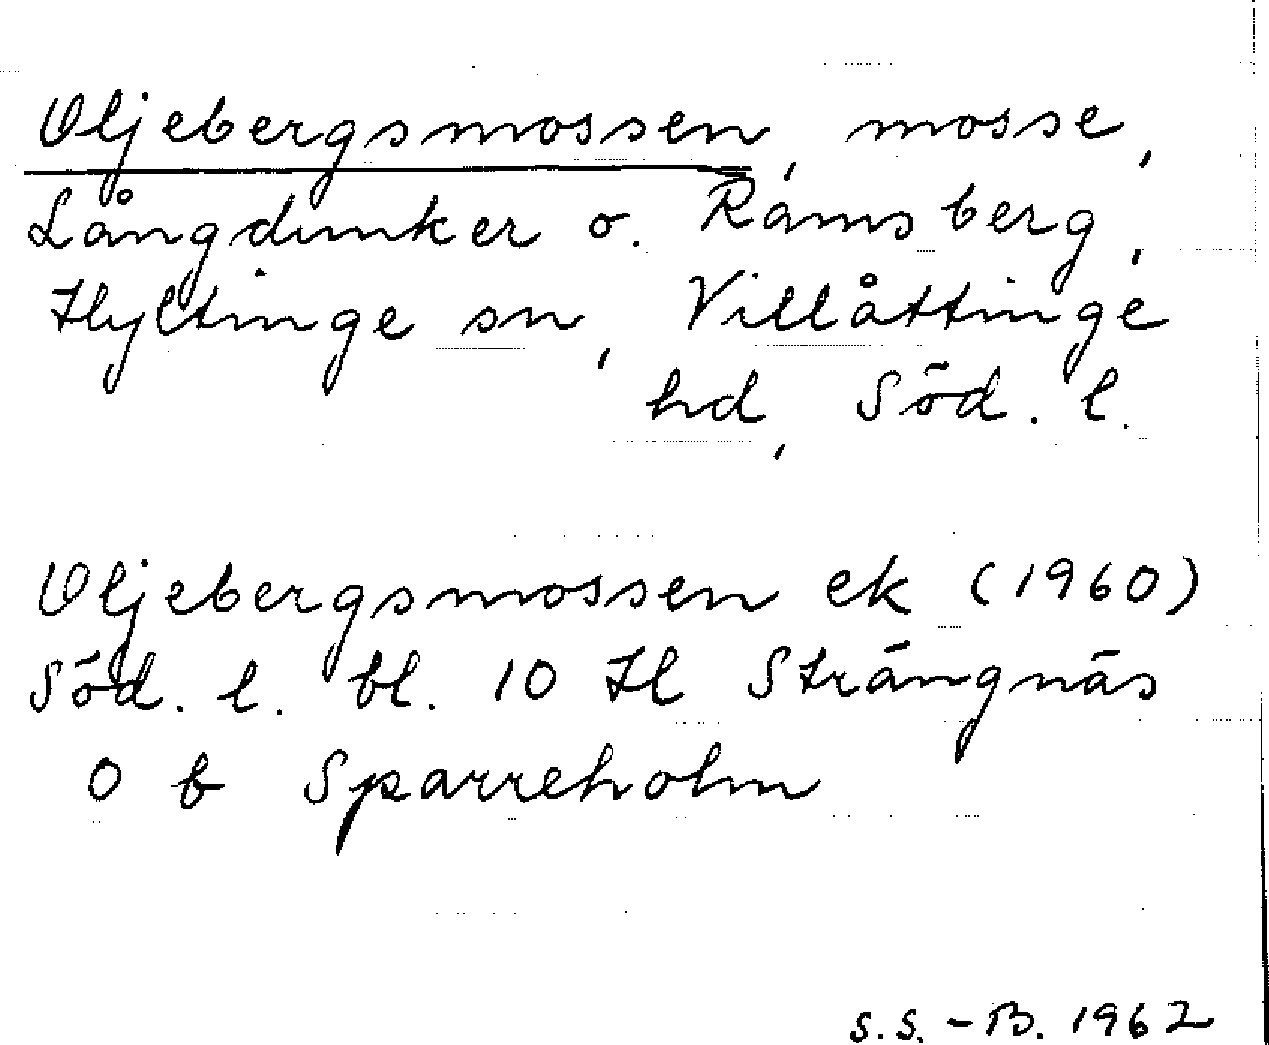 Oljebergsmossen, mosse,
Långdunker o. Ramsberg,
Hyltinge sn, Villåttinge
hd, Söd. l.
Oljebergsmossen ek (1960)
Söd. l. bl. 10 H Strängnäs
O b Sparreholm
S.S.-B. 1962